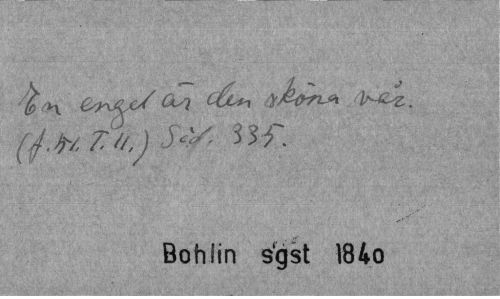 En engel är den sköna vår.
Sid. 335.
Bohlin sgst 1840